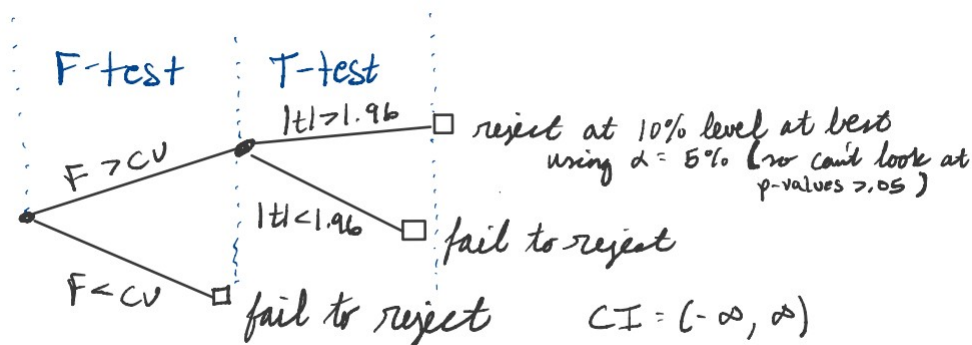 F-test
T-test
F > CV
|t|>1.96
reject at 10% level at best
using α = 5% (so can't look at
p-values >.05)
|t|<1.96
fail to reject
F < CV
fail to reject
CI = (-∞, ∞)